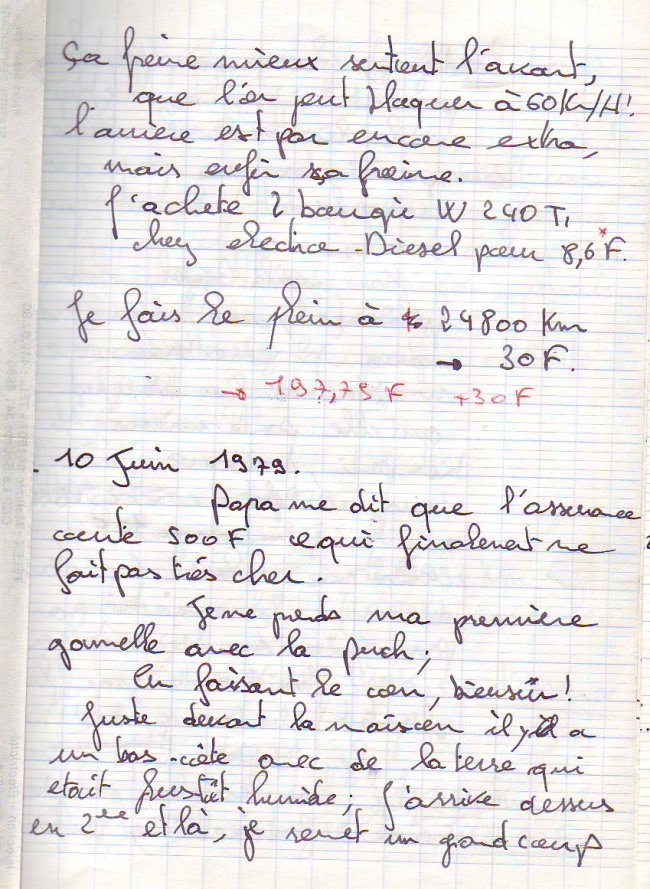 ça freine mieux surtout l'avant,
que l'on peut bloquer à 60 Km/H!
l'arrière est pas encore extra,
mais enfin ça freine.
J'achete 2 bougie W 240 T1
chez electro-Diesel pour 8,6 F.
Je fais le plein à 24800 Km
→ 30 F.
→ 197,75 F +30 F
10 Juin 1979.
Papa me dit que l'assurance
coute 500 F ce qui finalement ne
fait pas très cher.
Je me prends ma première
gamelle avec la puch;
En faisant le con, biensûr!
Juste devant la maison il y a
un bas-côté avec de la terre qui
etait plustôt humide; j'arrive dessus
en 2ème et là, je remet un grand coup